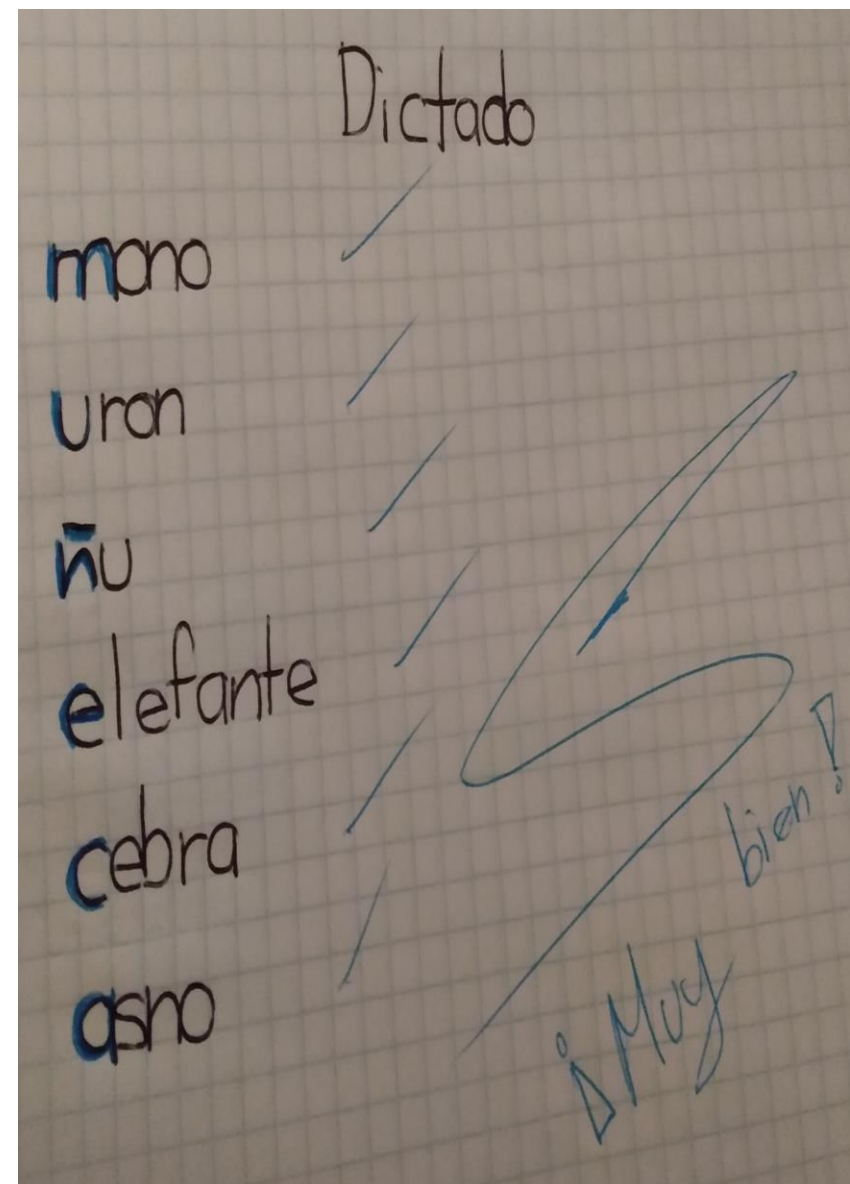 Dictado
mono
uron
ñu
elefante
cebra
asno
¡Muy
bien!